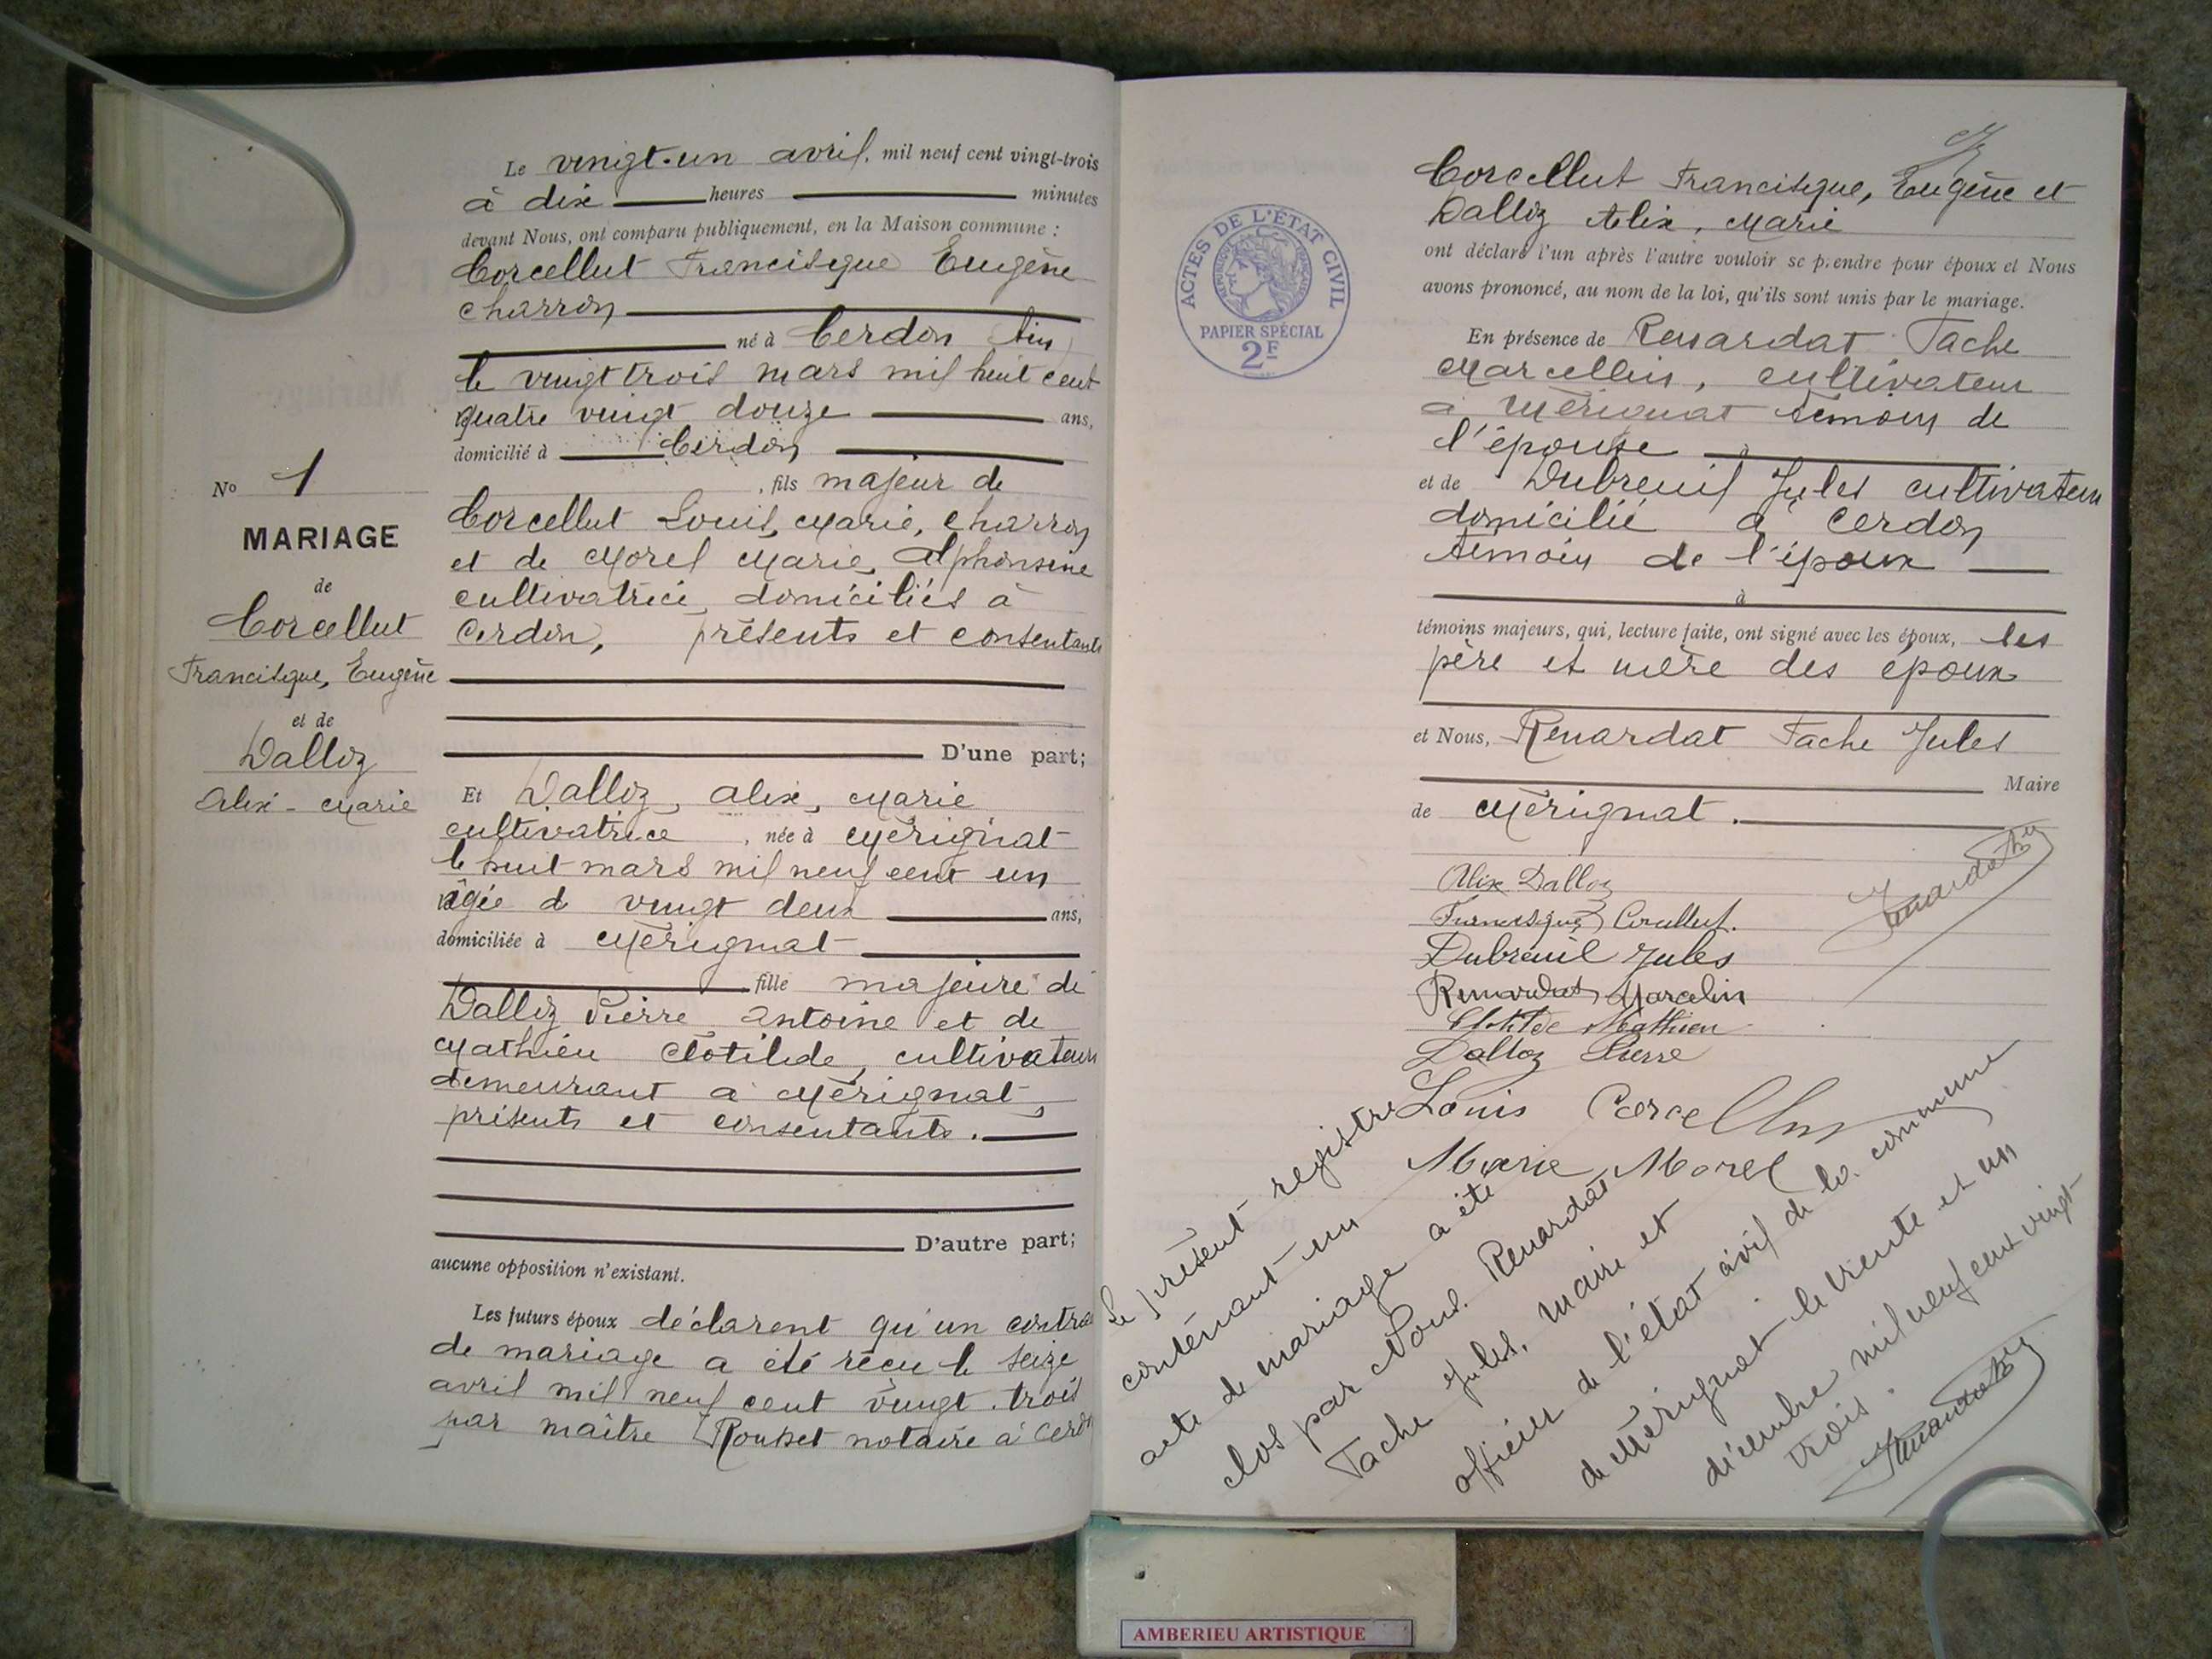 Le vingt-un avril, mil neuf cent vingt-trois
à dix heures minutes
devant Nous, ont comparu publiquement, en la Maison commune :
Corcellut Francisque Eugène
charron
né à Cerdon Ain
le vingt trois mars mil huit cent
quatre vingt douze ans,
domicilié à Cerdon
, fils majeur de
Corcellut Louis, Marie, charron
et de Morel Marie, Alphonsine
cultivatrice, domiciliés à
Cerdon, présents et consentants
D'une part;
Et Dalloz, Alix, Marie
cultivatrice , née à Mérignat
le huit mars mil neuf cent un
âgée de vingt deux ans,
domiciliée à Mérignat
fille majeure de
Dalloz Pierre Antoine et de
Mathieu Clotilde, cultivateurs
demeurant à Mérignat,
présents et consentants.
D'autre part;
aucune opposition n'existant.
Les futurs époux déclarent qu'un contrat
de mariage a été reçu le seize
avril mil neuf cent vingt-trois
par maître Rousset notaire à Cerdon
No 1
MARIAGE
de
Corcellut
Francisque, Eugène
et de
Dalloz
Alix - Marie
ACTES DE L'ÉTAT CIVIL
RÉPUBLIQUE FRANÇAISE
PAPIER SPÉCIAL
2F
Corcellut Francisque, Eugène et
Dalloz Alix, Marie
ont déclaré l'un après l'autre vouloir se prendre pour époux et Nous
avons prononcé, au nom de la loi, qu'ils sont unis par le mariage.
En présence de Renardat Tache
Marcellin, cultivateur
à Mérignat témoin de
l'épouse à
et de Dubreuil Jules cultivateur
domicilié à Cerdon
témoin de l'époux
à
témoins majeurs, qui, lecture faite, ont signé avec les époux, les
père et mère des époux
et Nous, Renardat Tache Jules
Maire
de Mérignat.
Alix Dalloz
Francisque Corcellut.
Dubreuil Jules
Renardat Marcelin
Clotilde Mathieu
Dalloz Pierre
Louis Corcellut
Marie Morel
Le présent registre
contenant un
acte de mariage a été
clos par Nous. Renardat
Tache Jules, maire et
officier de l'état civil de la commune
de Mérignat le trente et un
décembre mil neuf cent vingt
trois.
AMBERIEU ARTISTIQUE